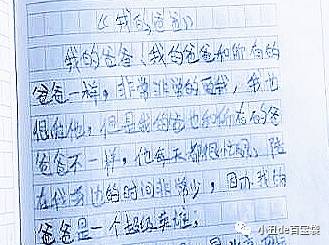 《我的爸爸》
我的爸爸《我的爸爸和所有的
爸爸一样，非常非常的爱我，我也
很爱他，但是我的爸也和所有的爸
爸不一样，他每天都很忙，陪
在我身边的时间非常少，因为我的
爸爸是一个超级英雄。
是
小丑de百宝袋